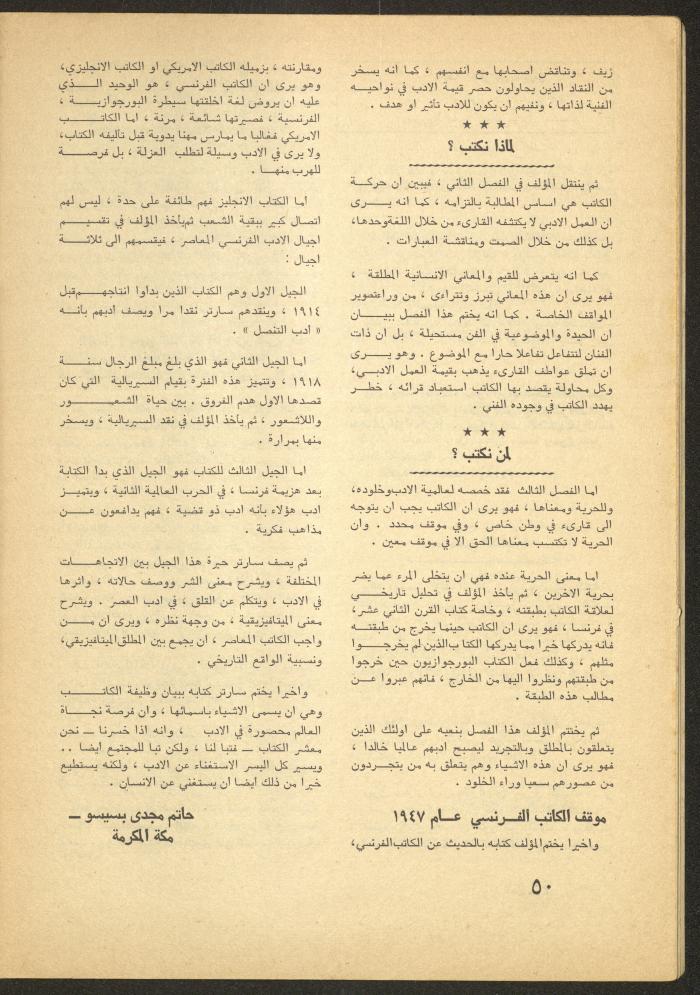 زيف ، وتناقض اصحابها مع انفسهم ، كما انه يسخر
من النقاد الذين يحاولون حصر قيمة الادب في نواحيه
الفنية لذاتها ، ونفيهم ان يكون للادب تأثير او هدف .
★ ★ ★
لماذا نكتب ؟
ثم ينتقل المؤلف في الفصل الثاني ، فيبين ان حركة
الكاتب هي اساس المطالبة بالتزامه ، كما انه يرى
ان العمل الادبي لا يكتشفه القارىء من خلال اللغة وحدها،
بل كذلك من خلال الصمت ومناقشة العبارات .
كما انه يتعرض للقيم والمعاني الانسانية المطلقة ،
فهو يرى ان هذه المعاني تبرز وتتراءى ، من وراء تصوير
المواقف الخاصة . كما انه يختم هذا الفصل ببيان
ان الحيدة والموضوعية في الفن مستحيلة ، بل ان ذات
الفنان لتتفاعل تفاعلا حارا مع الموضوع . وهو يرى
ان تملق عواطف القارىء يذهب بقيمة العمل الادبي،
وكل محاولة يقصد بها الكاتب استعباد قرائه ، خطر
يهدد الكاتب في وجوده الفني .
★ ★ ★
لمن نكتب ؟
اما الفصل الثالث فقد خصصه لعالمية الادب وخلوده،
وللحرية ومعناها ، فهو يرى ان الكاتب يجب ان يتوجه
الى قارىء في وطن خاص ، وفي موقف محدد . وان
الحرية لا تكتسب معناها الحق الا في موقف معين .
اما معنى الحرية عنده فهي ان يتخلى المرء عما يضر
بحرية الاخرين ، ثم يأخذ المؤلف في تحليل تاريخي
لعلاقة الكاتب بطبقته ، وخاصة كتاب القرن الثاني عشر،
في فرنسا ، فهو يرى ان الكاتب حينما يخرج من طبقته
فانه يدركها خيرا مما يدركها الكتاب الذين لم يخرجوا
مثلهم ، وكذلك فعل الكتاب البورجوازيون حين خرجوا
من طبقتهم ونظروا اليها من الخارج ، فانهم عبروا عن
مطالب هذه الطبقة .
ثم يختتم المؤلف هذا الفصل بنعيه على اولئك الذين
يتعلقون بالمطلق وبالتجريد ليصبح ادبهم عالميا خالدا ،
فهو يرى ان هذه الاشياء وهم يتعلق به من يتجردون
من عصورهم سعيا وراء الخلود .
موقف الكاتب الفرنسي عام ١٩٤٧
واخيرا يختم المؤلف كتابه بالحديث عن الكاتب الفرنسي،
ومقارنته ، بزميله الكاتب الامريكي او الكاتب الانجليزي،
وهو يرى ان الكاتب الفرنسي ، هو الوحيد الذي
عليه ان يروض لغة اخلقتها سيطرة البورجوازية ،
الفرنسية ، فصيرتها شائعة ، مرنة ، اما الكاتب
الامريكي فغالبا ما يمارس مهنا يدوية قبل تأليفه الكتاب،
ولا يرى في الادب وسيلة لتطلب العزلة ، بل فرصة
للهرب منها .
اما الكتاب الانجليز فهم طائفة على حدة ، ليس لهم
اتصال كبير ببقية الشعب ثم يأخذ المؤلف في تقسيم
اجيال الادب الفرنسي المعاصر ، فيقسمهم الى ثلاثة
اجيال :
الجيل الاول وهم الكتاب الذين بدأوا انتاجهم قبل
١٩١٤ ، وينقدهم سارتر نقدا مرا ويصف ادبهم بأنه
« ادب التنصل » .
اما الجيل الثاني فهو الذي بلغ مبلغ الرجال سنة
١٩١٨ ، وتتميز هذه الفترة بقيام السيريالية التي كان
قصدها الاول هدم الفروق . بين حياة الشعور
واللاشعور ، ثم يأخذ المؤلف في نقد السيريالية ، ويسخر
منها بمرارة .
اما الجيل الثالث للكتاب فهو الجيل الذي بدا الكتابة
بعد هزيمة فرنسا ، في الحرب العالمية الثانية ، ويتميز
ادب هؤلاء بأنه ادب ذو قضية ، فهم يدافعون عن
مذاهب فكرية .
ثم يصف سارتر حيرة هذا الجيل بين الاتجاهات
المختلفة ، ويشرح معنى الشر ووصف حالاته ، واثرها
في الادب ، ويتكلم عن القلق ، في ادب العصر . ويشرح
معنى الميتافيزيقية ، من وجهة نظره ، ويرى ان من
واجب الكاتب المعاصر ، ان يجمع بين المطلق الميتافيزيقي،
ونسبية الواقع التاريخي .
واخيرا يختم سارتر كتابه ببيان وظيفة الكاتب
وهي ان يسمى الاشياء باسمائها ، وان فرصة نجاة
العالم محصورة في الادب ، وانه اذا خسرنا ــ نحن
معشر الكتاب ــ فتبا لنا ، ولكن تبا للمجتمع ايضا . .
ويسير كل اليسر الاستغناء عن الادب ، ولكنه يستطيع
خيرا من ذلك ايضا ان يستغني عن الانسان .
حاتم مجدى بسيسو ــ
مكة المكرمة
٥٠